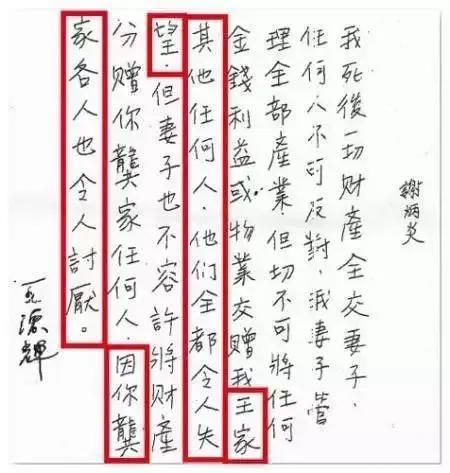 謝炳炎
我死後一切财產全交妻子.
任何人不可反對，我妻子管
理全部產業.但切不可將任何
金錢利益或物業交赠我王家
其他任何人.他们全都令人失
望.但妻子也不容許將财產
分赠你龔家任何人.因你龔
家各人也令人討厭。
王德輝